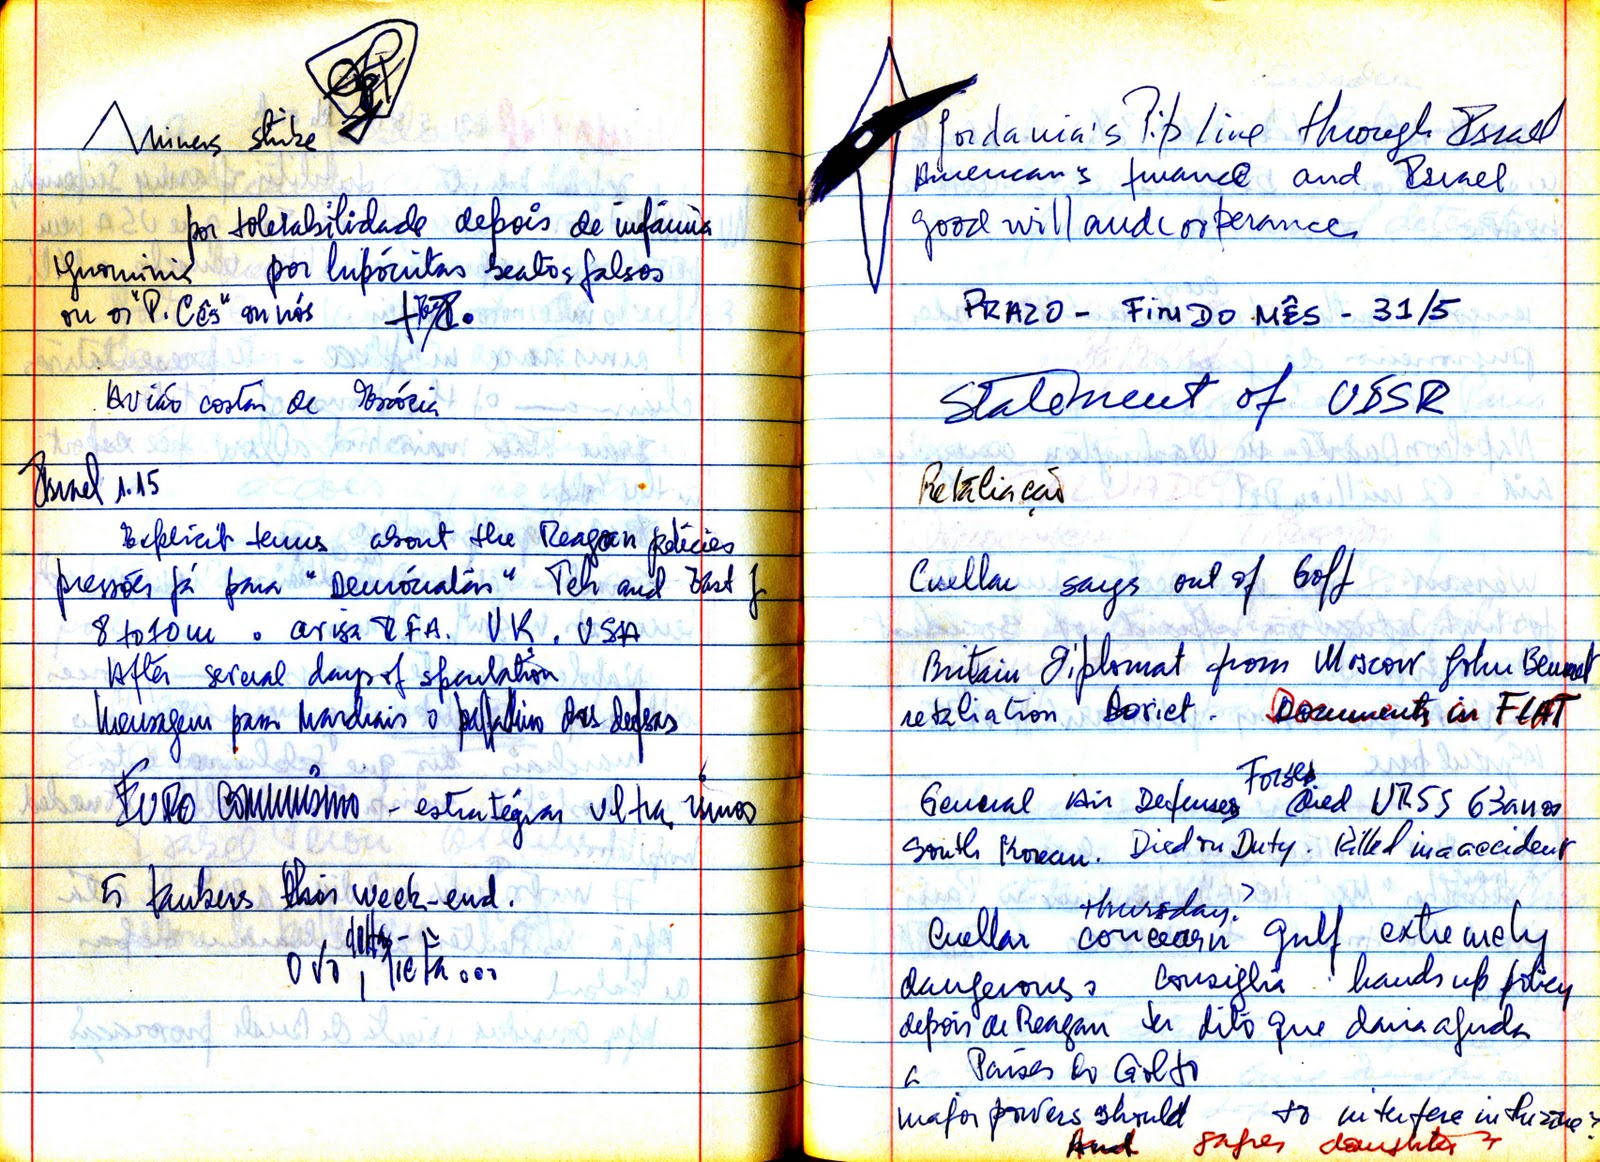 Miners strike
por tolerabilidade depois de infâmia
Ignominia por hipócritas beatos falsos
ou os "P. Cês" ou nós
Avião costas de
Israel 1.15
Explicit terms about the Reagan policies
pressões já para "Democratas" - Teh and East
8 to 10 m . avisa RFA. UK. USA
After several days of speculation
Mensagem para Marchais o palladino das defesas
EURO COMMUNISMO - estratégias ultra,
5 tankers this week-end.
delta-
Ovo,
Jordania's Pip Line through Israel
American's finance and Israel
good will and corperance
PRAZO - FIM DO MÊS - 31/5
Statement of USSR
Retaliação
Cuellar says out of Golf
Britain Diplomat from Moscow John Bennet
retaliation Soviet. Documents in FLAT
Forses
General Air Defenses Died URSS 63 anos
South Korean. Died on Duty. Killed in a accident
thursday?
Cuellar concearn gulf extremely
dangerous consiglia hands up policy
depois de Reagan ter dito que daria ajuda
a Paises do Golfo
major powers should to interfere in the zone?
And daughter